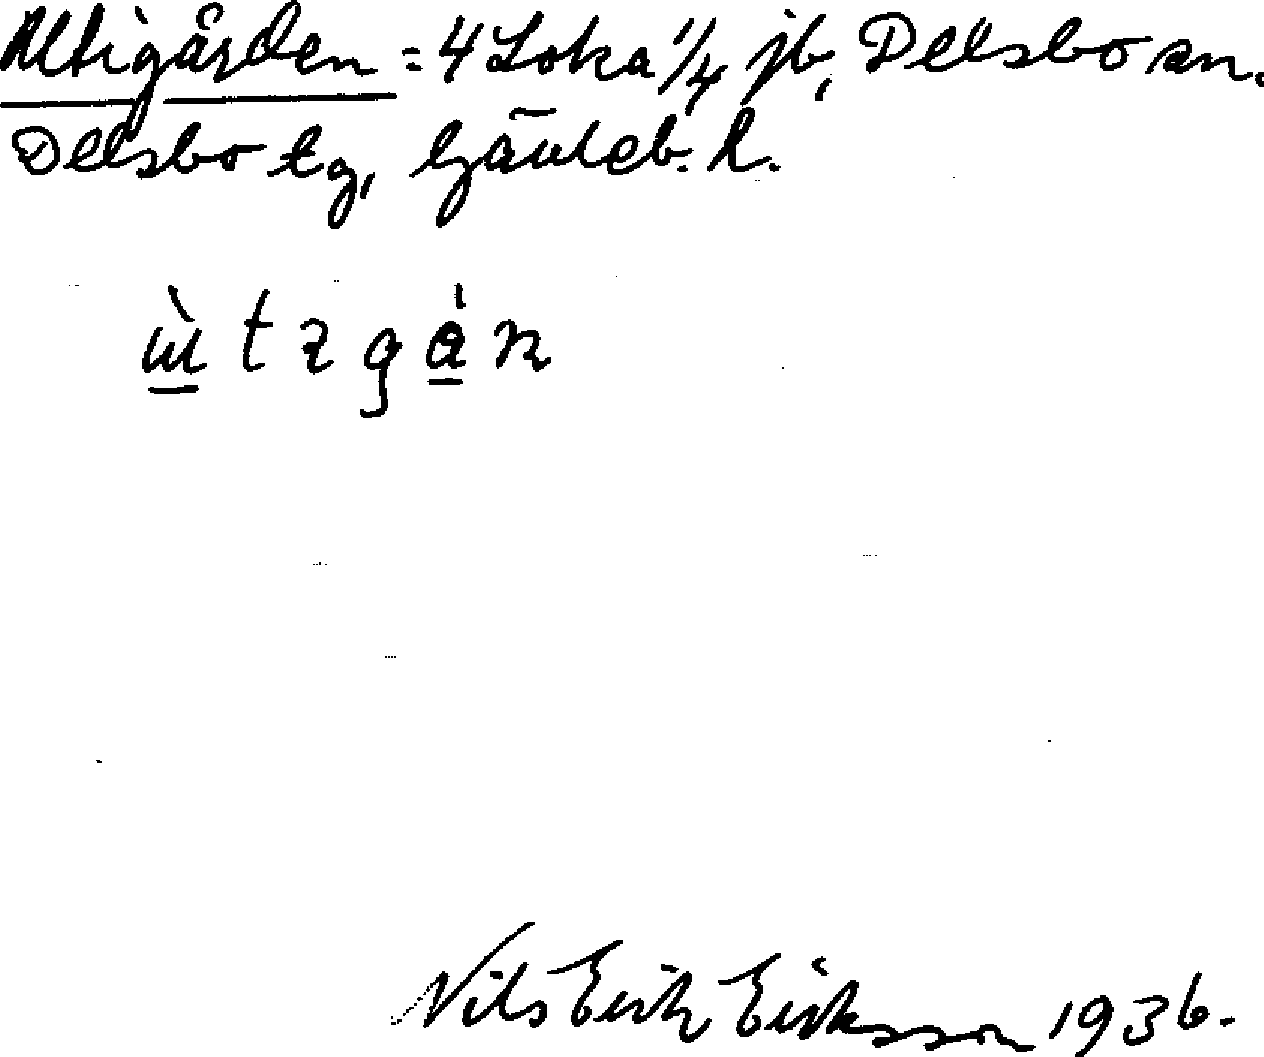 Uttigården = 4 Loka 1/4 jb, Delsbo sn.
Delsbo tg, Gävleb. l.
Nils Erik Eriksson 1936.